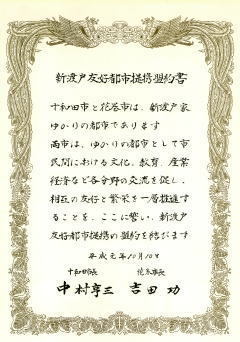 新渡戸友好都市提携盟約書
十和田市と花巻市は、新渡戸家
ゆかりの都市であります
両市は、ゆかりの都市として市
民間における文化、教育、産業
経済など各分野の交流を促し、
相互の友好と繁栄を一層推進す
ることを、ここに誓い、新渡戸
友好都市提携の盟約を結びます
平成元年10月10日
十和田市長 花巻市長
中村亨三 吉田功